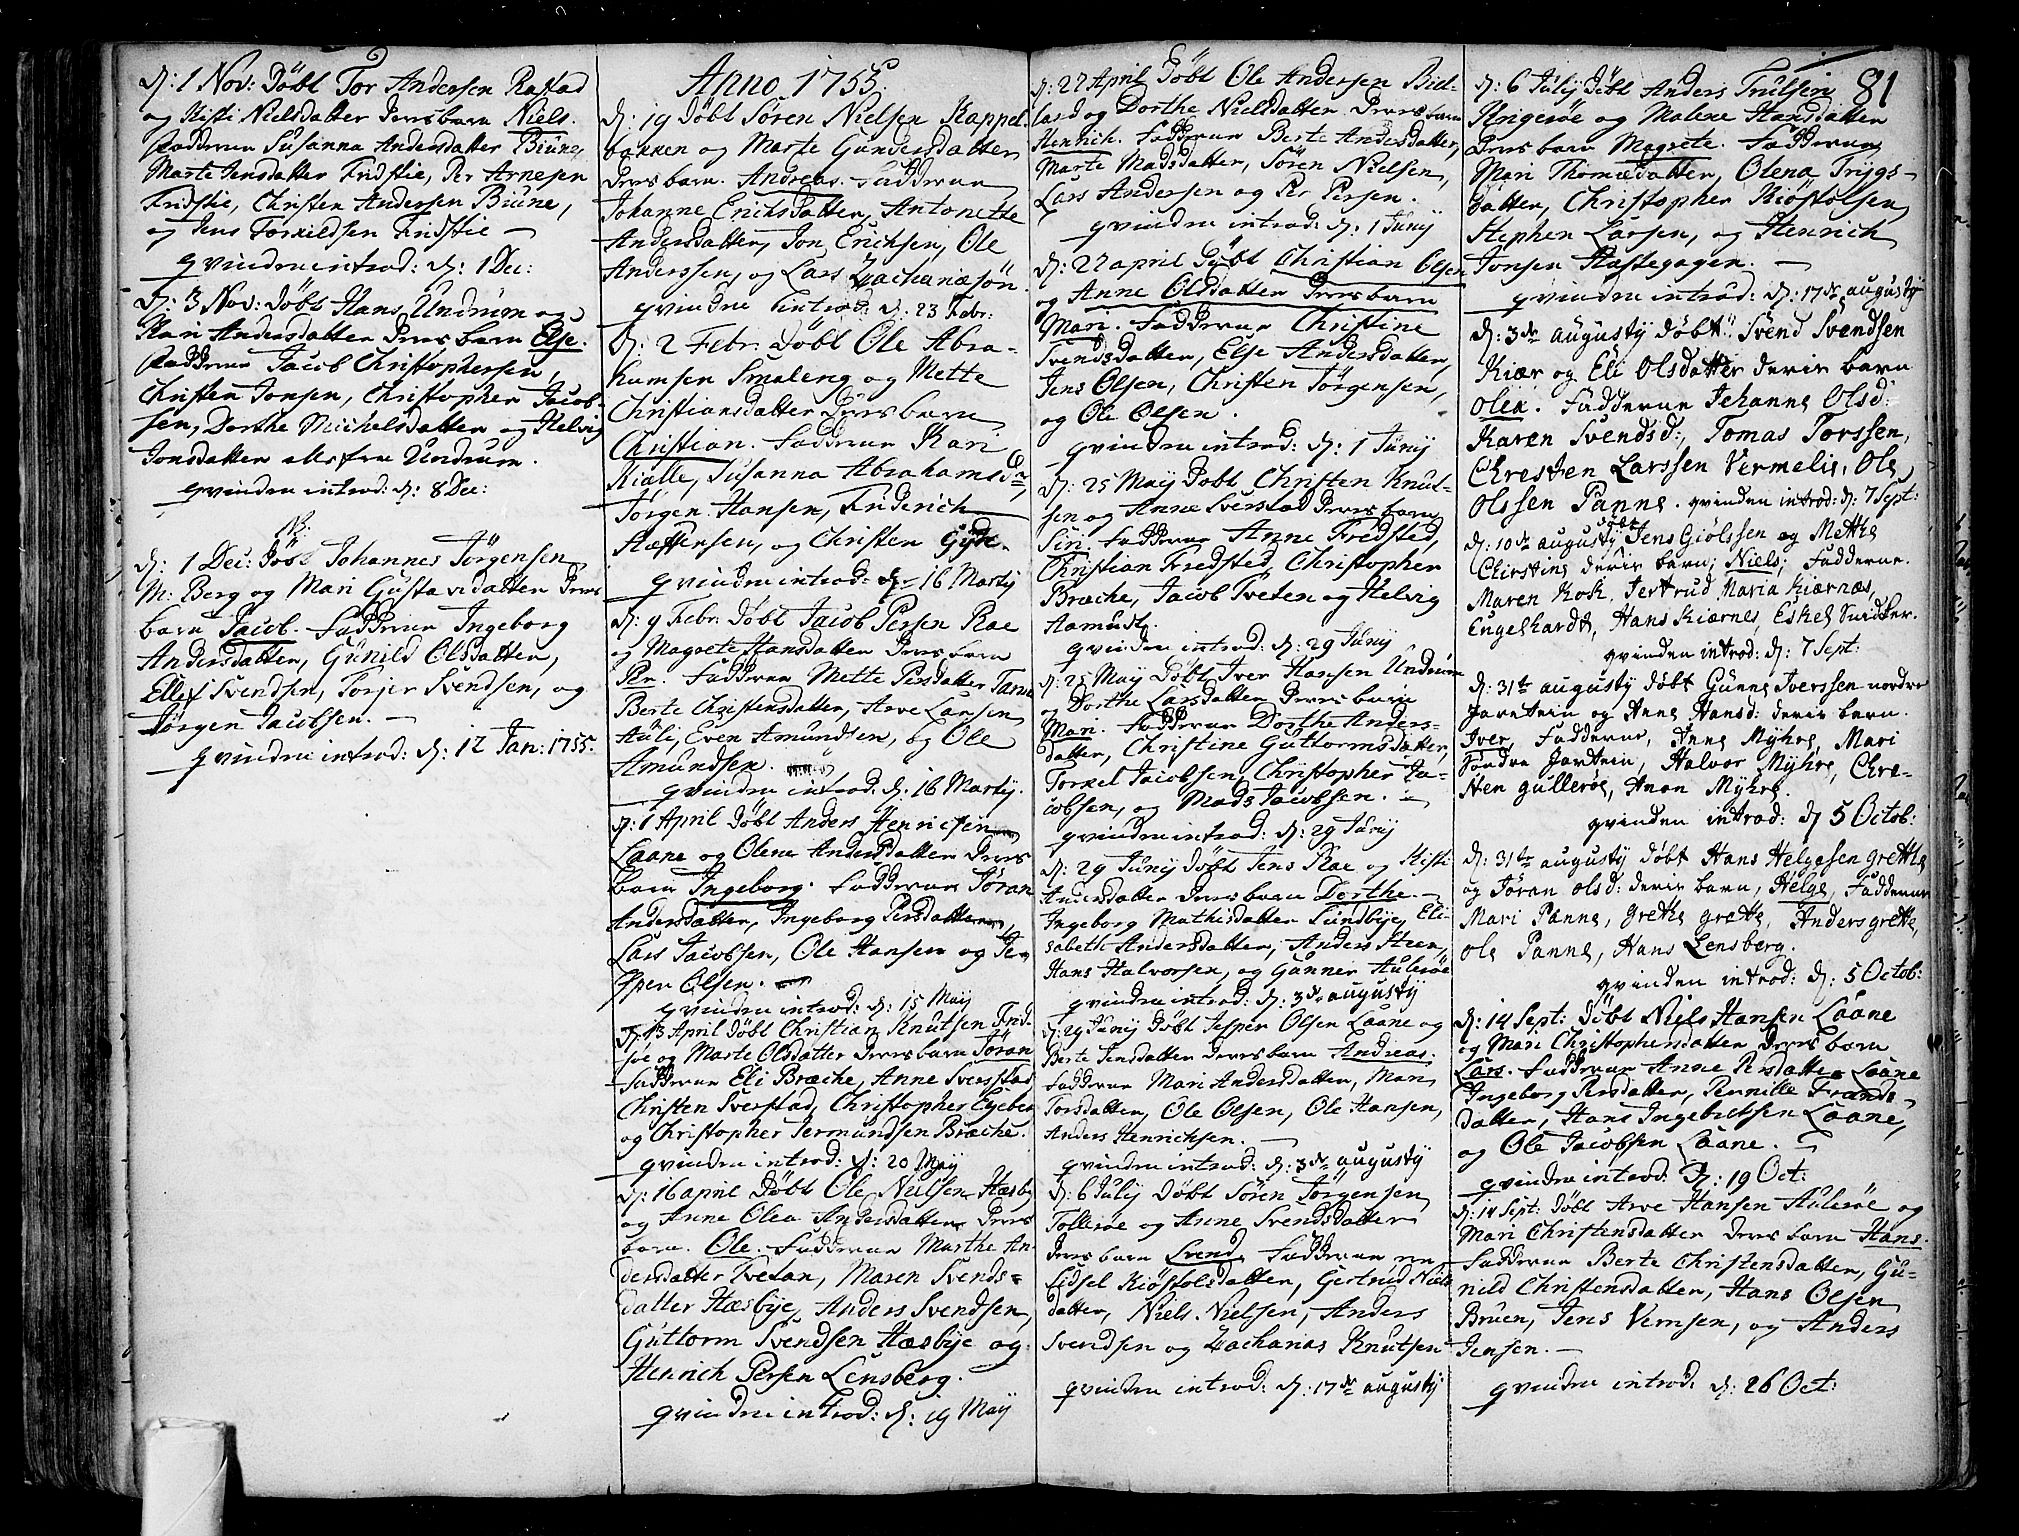 d: 1 Nov: Døbt Tor Andersen Rastad
og Kisti Nielsdatter deres barn Niels.
Fadderne Susanna Andersdatter Biüne,
Marte Jensdatter Fridstie, Per Arnesen
Fridstie, Christen Andersen Biüne,
og Jens Torkildsen Fridstie —
qvinden introd: d: 1 Dec:
d: 3 Nov: døbt Hans Undrum og
Kari Andersdatter deres barn Else.
Fadderne Jacob Christophersen,
Christen Jonsen, Christopher Jacob-
sen, Dorthe Michelsdatter og Helvig
Jonsdatter alle fra Undrum.
qvinden introd: d: 8 Dec:
N:
d: 1 Dec: Døbt Johannes Jørgensen
M: Berg og Mari Gustavsdatter deres
barn Jacob. Fadderne Ingeborg
Andersdatter, Günild Olsdatter,
Ellef Svendsen, Torjer Svendsen, og
Jørgen Jacobsen. —
qvinden introd: d: 12 Jan: 1755.
Anno 1755.
d: 19 Døbt Søren Nielsen Kappel
bakken og Marte Gundersdatter
deres barn. Andreas. Fadderne
Johanne Erichsdatter, Antonette
Andersdatter, Jon Erichsen, Ole
Anderssen, og Lars Zachariæsøn.
qvinden Introd: d: 23 Febr:
d: 2 Febr: Døbt Ole Abra-
hamsen Smaleng og Mette
Christiansdatter deres barn
Christian. Fadderne Kari
Kialle, Susanna Abrahamsdr,
Jørgen Hansen, Friderich
Steffensen, og Christen Gyde.
qvinden introd: d: 16 Martij
d: 9 Febr: Døbt Jacob Persen Rae
og Magrete Hansdatter deres barn
Per. Fadderne Mette Persdatter Tarne
Berte Christensdatter, Arve Larsen
Auli, Even Amundsen, og Ole
Amundsen.
qvinden introd: d: 16 Martij.
d: 1 April Døbt Anders Henrichsen
Laane og Olene Andersdatter deres
barn Ingeborg. Fadderne Jøran
Andersdatter, Ingeborg Persdatter,
Lars Jacobsen, Ole Hansen og Je-
sper Olsen.
qvinden introd: d: 15 May
d: 13 April døbt Christian Knutsen Frid-
søe og Marte Olsdatter deres barn Jøran
Fadderne Eli Bræche, Anne Sverstad
Christen Sverstad, Christopher Eyeber
og Christopher Jermundsen Bræche.
qvinden introd: d: 20 May
d: 16 april Døbt Ole Nielsen Hæsby
og Anne Olea Andersdatter deres
barn. Ole. Fadderne Marthe An-
dersdatter Tvetan, Maren Svends-
datter Hæsbye, Anders Svendsen,
Guttorm Svendsen Hæsbye og
Henrich Persen Lensberg.
qvinden introd: d: 19 May
d: 27 April Døbt Ole Andersen Biel-
land og Dorthe Nielsdatter deres barn
Henrich. Fadderne Berte Andersdatter,
Marte Madsdatter, Søren Nielsen,
Lars Andersen og Per Persen.
qvinden introd: d: 1 Junij
d: 27 april Døbt Christian Olsen
og Anne Olsdatter deres barn
Mari. Fadderne Christine
Svendsdatter, Else Andersdatter,
Jens Olsen, Christen Jørgensen,
og Ole Olsen.
qvinden introd: d: 1 Junij
d: 25 May Døbt Christen Knut-
sen og Anne Sverstad deres barn
Siri. Fadderne Anne Fredsted,
Christian Fredsted, Christopher
Bræche, Jacob Tveten og Helvig
Aamunds.
qvinden introd: d: 29 Junij
d: 25 May Døbt Iver Hansen Undrum
og Dorthe Larsdatter deres barn
Mari. Fadderne Dorthe Anders-
datter, Christine Guttormsdatter,
Torkel Jacobsen, Christopher Ja-
cobsen, og Mads Jacobsen.
qvinden introd: d: 29 Junij
d: 29 Junij Døbt Jens Rae og Kisti
Andersdatter deres barn Dorthe
Ingeborg Mathisdatter Sundbye, Eli-
sabeth Andersdatter, Anders Steen,
Hans Halvorsen, og Gunner Aulerøe
qvinden introd: d: 3de augusty
d: 29 Junij Døbt Jesper Olsen Laane og
Berte Jensdatter deres barn Andreas.
Fadderne Mari Andersdatter, Mari
Torsdatter, Ole Olsen, Ole Hansen,
Anders Henrichsen. —
qvinden introd: d: 3de augusty
d: 6 Julij Døbt Søren Jørgensen
Tollerøe og Anne Svendsdatter
deres barn Svend. Fadderne
Sidsel Kiøstolsdatter, Gertrud Niels
datter, Niels Nielsen, Anders
Svendsen og Zacharias Knutsen
qvinden introd: d: 17de augusty
81
d: 6 Julij Døbt Anders Trulsen
Ringsøe og Malene Hansdatter
deres barn Magrete. Fadderne
Mari Thomædatter, Olena Trygs-
datter, Christopher Kiøstolsen
Stephen Larsen, og Henrich
Jonsen Hassegagen. —
qvinden introd: d: 17de augusty
d: 3de augusty døbt Svend Svendsen
Kiær og Eli Olsdatter derir barn
Olea. Fadderne Jehanne Olsd:
Karen Svendsd:, Tomas Torssen,
Chresten Larssen Vermelie, Ole
Olssen Panne. qvinden introd: d: 7 Sept:
d: 10de augusty døbt Jens Giølssen og Mette
Chirstine derir barn, Niels, Fadderne.
Maren Kok, Jertrud Maria Kiærnæs,
Engelhardt, Hans Kiærnes, Eskel Snidker.
qvinden introd: d: 7 Sept:
d: 31te augusty døbt Gunne Iverssen nordre
Jartein og Anne Hansd: derir barn.
Iver, Fadderne, Anne Myhre, Mari
Søndre Jartein, Halvor Myhre, Chre-
sten gullerøe, Anon Myhre.
qvinden introd: d 5 Octob:
d: 31te augusty døbt Hans Helgesen grette
og Jøran olsd: derir barn, Helge, Fadderne
Mari Panne, grethe grette, Anders grette,
ole Panne, Hans Lensberg.
qvinden introd: d: 5 Octob:
d: 14 Sept: Døbt Niels Hansen Laane
og Mari Christophersdatter deres barn
Lars. Fadderne Anne Persdatter Laane
Ingeborg Persdatter, Pernille Frands-
datter, Hans Ingebretsen Laane,
og Ole Jacobsen Laane.
qvinden introd: d: 19 Oct:
d: 14 Sept: døbt Arve Hansen Aulerøe og
Mari Christensdatter deres barn Hans.
Fadderne Berte Christensdatter, Gu-
nild Christensdatter, Hans Olsen
Bruen, Jens Vernsen, og Anders
Jensen. —
qvinden introd: d: 26 Oct: